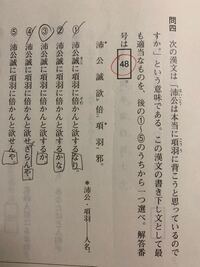 問四 次の漢文は「沛公は本当に項羽に背こうと思っているので
すか。」という意味である。この漢文の書き下し文として最
も適当なものを、後の①~⑤のうちから一つ選べ。解答番
号は 48
沛公誠欲倍項羽邪。
*沛公・項羽…人名。
① 沛公誠に項羽に倍かんと欲するなり
② 沛公誠に項羽に倍かんと欲するかな
③ 沛公誠に項羽に倍かんと欲するか
④ 沛公誠に項羽に倍かんと欲せざらんや
⑤ 沛公誠に項羽に倍かんと欲せんや